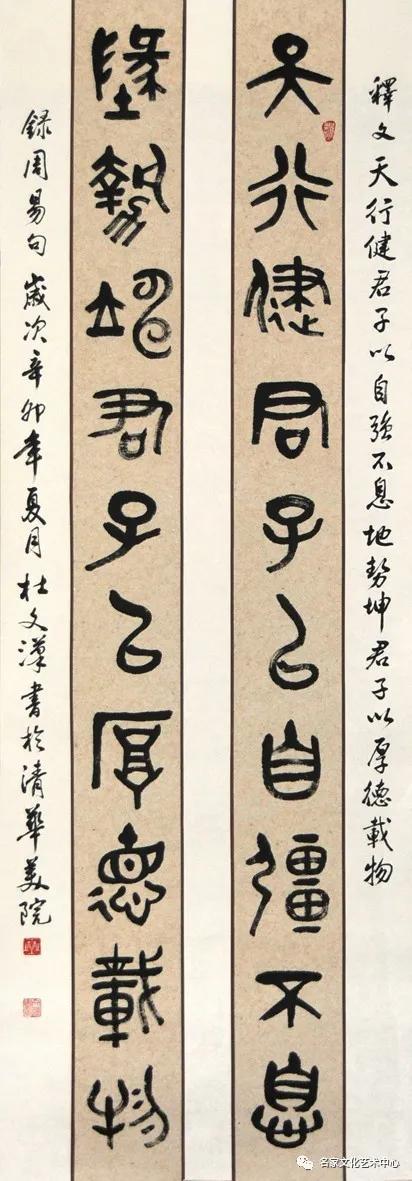 釋文天行健君子以自強不息地勢坤君子以厚德載物
天行健君子以自彊不息
墬勢坤君子以厚悳載物
録周易句歲次辛卯年夏月杜文漢書於清華美院
名家文化艺术中心